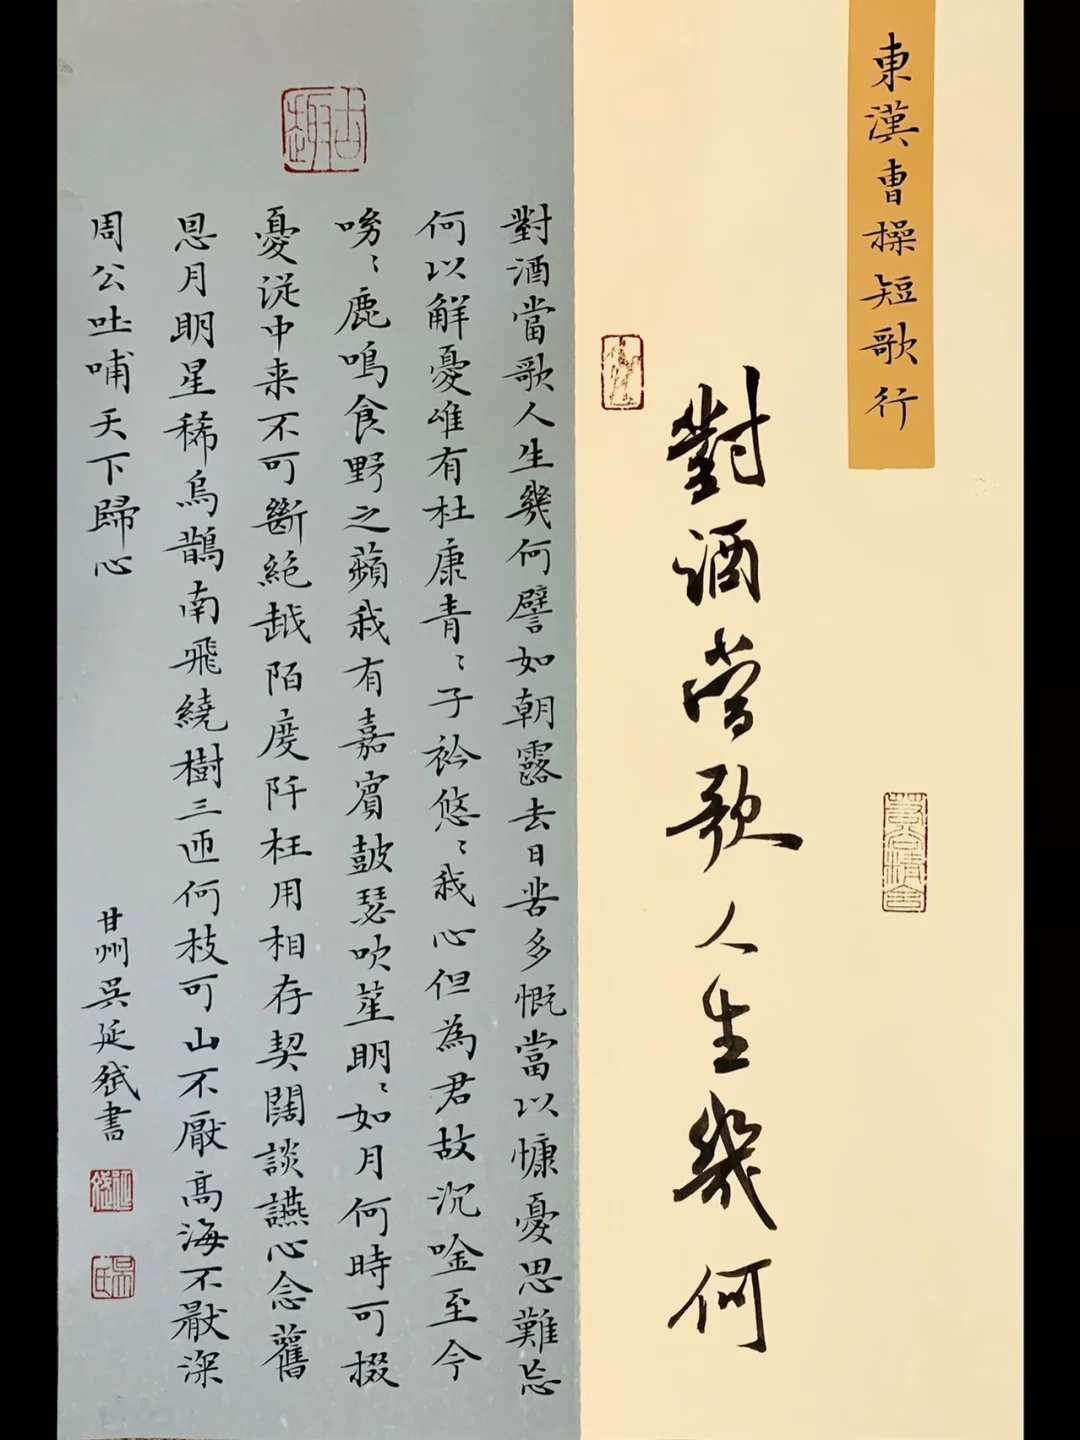 東漢曹操短歌行
對酒當歌人生幾何
對酒當歌人生幾何譬如朝露去日苦多慨當以慷憂思難忘
何以解憂唯有杜康青〻子衿悠〻我心但為君故沉唫至今
呦〻鹿鳴食野之蘋我有嘉賓鼓瑟吹笙明〻如月何時可掇
憂從中来不可斷絕越陌度阡枉用相存契闊談讌心念舊
恩月明星稀烏鵲南飛繞樹三匝何枝可山不厭高海不厭深
周公吐哺天下歸心
甘州吳延斌書
延斌
吳氏